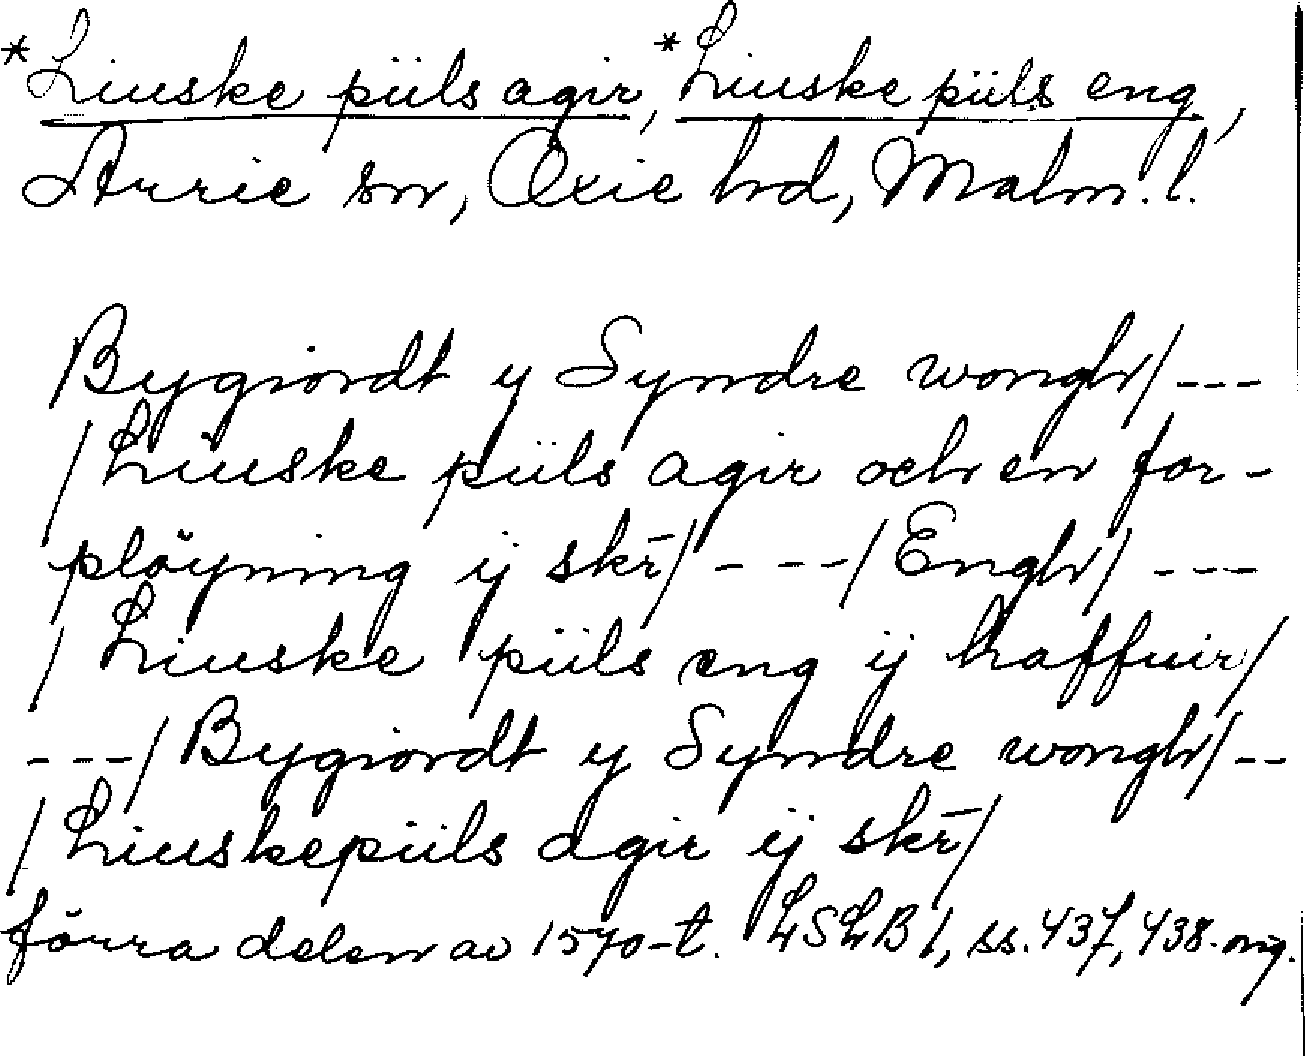 *Liuske piils agir, *Liuske piils eng,
Arrie sn, Oxie hd, Malm. l.
Bygiordt y Syndre wongh/---
/Liuske piils agir och en for-
plöyning ij skr̄/ - - --/Engh/ ---
/Liuske piils eng ij haffuir/
---/Bygiordt y Syndre wongh/--
/Liuskepiils agir ij skr̄/
förra delen av 1570-t. LSLB 1, ss. 437, 438. ong.